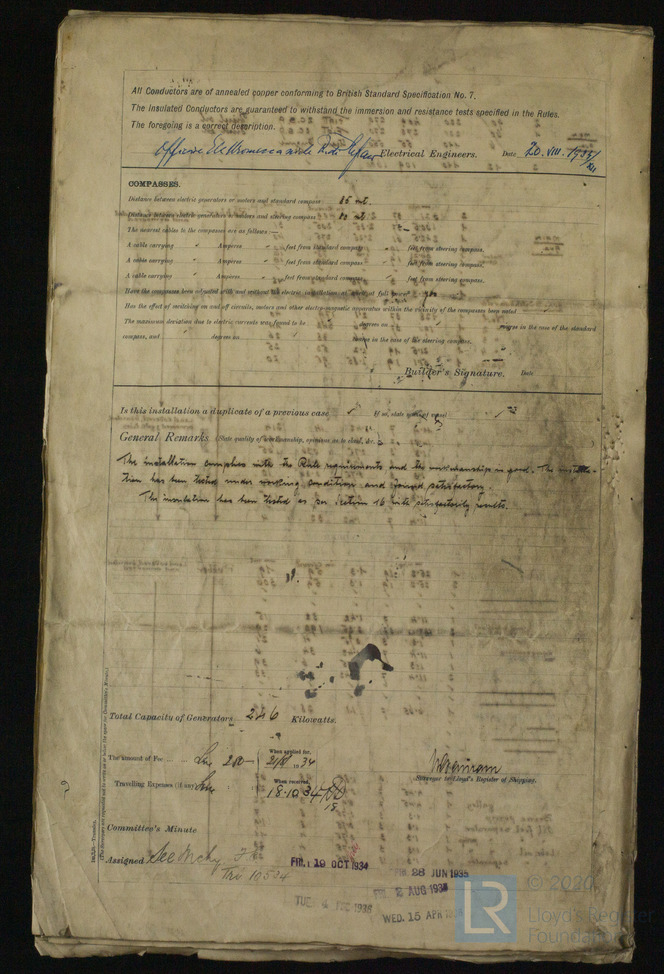 All Conductors are of annealed copper conforming to British Standard Specification No. 7.
The Insulated Conductors are guaranteed to withstand the immersion and resistance tests specified in the Rules.
The foregoing is a correct description.
Electrical Engineers. Date 20. VIII. 1934
COMPASSES.
Distance between electric generators or motors and standard compass 15 mt.
Distance between electric generators or motors and steering compass mt.
The nearest cables to the compasses are as follows:—
A cable carrying " Amperes " feet from standard compass " feet from steering compass.
A cable carrying " Amperes " feet from standard compass " feet from steering compass.
A cable carrying " Amperes " feet from standard compass " feet from steering compass.
Have the compasses been adjusted with and without the electric installation at work at full power yes
Has the effect of switching on and off circuits, motors and other electro-magnetic apparatus within the vicinity of the compasses been noted
The maximum deviation due to electric currents was found to be " degrees on " course in the case of the standard
compass, and " degrees on " course in the case of the steering compass.
Builder's Signature. Date
Is this installation a duplicate of a previous case If so, state name of vessel
General Remarks (State quality of workmanship, opinions as to class, &c.)
The installation complies with the Rule requirements and the workmanship is good. The installa-
tion has been tested under working conditions and found satisfactory.
The insulation has been tested as per section 16 with satisfactorily results.
Total Capacity of Generators 246 Kilowatts.
The amount of Fee ... Lire When applied for, 34
Travelling Expenses (if any) Lire When received, 18.10.34
Surveyor to Lloyd's Register of Shipping.
Committee's Minute
Assigned See
FRI. 19 OCT 1934
28 JUN 1935
2 AUG 1935
TUE. 1936
WED. 15 APR
© 2020
Lloyd's Register
Foundation
LR